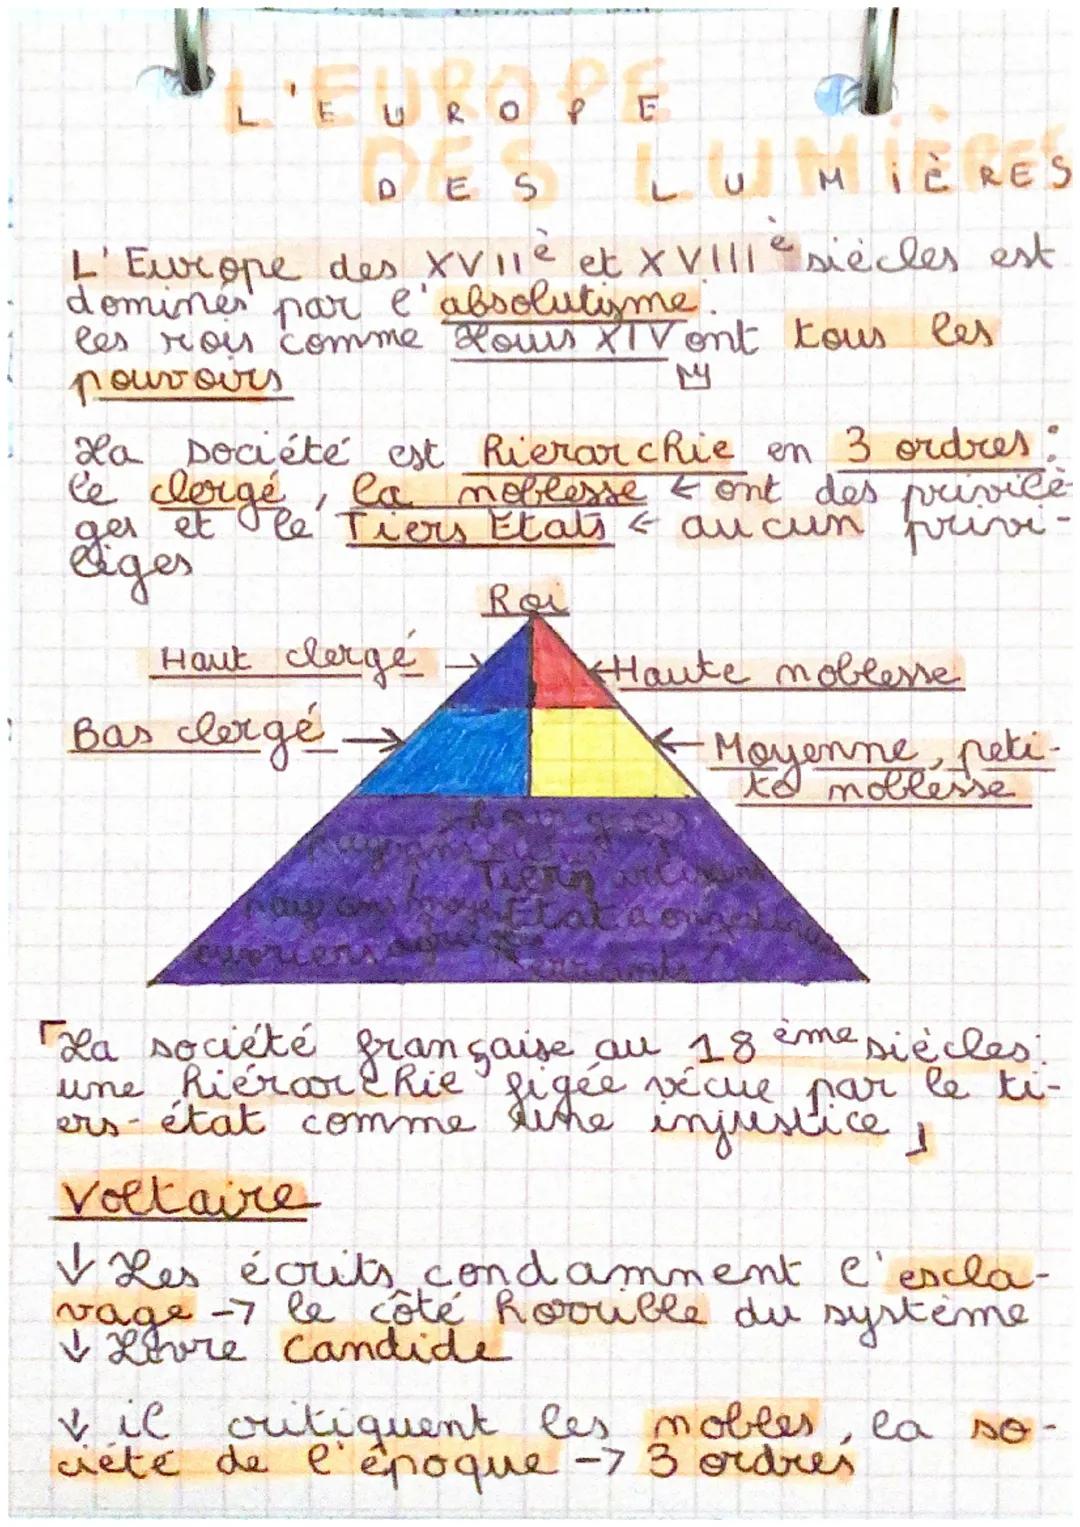 L'EUROPE
DES LUMIÈRES
L'Europe des XVIIè et XVIIIè siècles est
dominés par l'absolutisme.
les rois comme Louis XIV ont tous les
pouvoirs
La société est hierarchie en 3 ordres :
le clergé, la noblesse ← ont des privilè-
ges et le Tiers Etats ← aucun privi-
liges
Roi
Haut clergé →
← Haute noblesse
Bas clergé →
← Moyenne, peti-
te noblesse
Tiers
Etat
「La société française au 18ème siècles:
une hiérarchie figée vécue par le ti-
ers-état comme une injustice」
Voltaire
↓ Les écrits condamnent l'escla-
vage → le côté horrible du système
↓ Livre Candide
↓ il critiquent les nobles, la so-
ciété de l'époque → 3 ordres